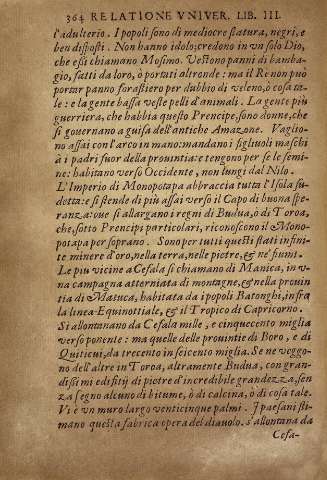 364 RELATIONE VNIVER. LIB. III.
l'adulterio. I popoli sono di mediocre statura, negri, e
ben disposti. Non hanno idolo; credono in vn solo Dio,
che essi chiamano Mosimo. Vestono panni di bamba-
gia, fatti da loro, ò portati altronde: ma il Re non può
portar panno forastiero per dubbio di veleno, ò cosa ta-
le: e la gente bassa veste pelli d'animali. La gente più
guerriera, che habbia questo Prencipe, sono donne, che
si gouernano a guisa dell'antiche Amazone. Vaglio-
no assai con l'arco in mano: mandano i figliuoli maschi
à i padri fuor della prouintia: e tengono per se le femi-
ne: habitano verso Occidente, non lungi dal Nilo.
L'Imperio di Monopotapa abbraccia tutta l'Isola su-
detta: e si stende di più assai verso il Capo di buona spe-
ranza: oue si allargano i regni di Budua, ò di Toroa,
che, sotto Prencipi particolari, riconoscono il Mono-
potapa per soprano. Sono per tutti questi stati infini-
te minere d'oro, nella terra, nelle pietre, & ne' fiumi.
Le piu vicine a Cefala si chiamano di Manica, in v-
na campagna atterniata di montagne, & nella prouin
tia di Matuca, habitata da i popoli Batonghi, infra
la linea Equinottiale, & il Tropico di Capricorno.
Si allontanano da Cefala mille, e cinquecento miglia
verso ponente: ma quelle delle prouintie di Boro, e di
Quiticui, da trecento in seicento miglia. Se ne veggo-
no dell'altre in Toroa, altramente Budua, con gran-
dissimi edifitij di pietre d'incredibile grandezza, sen
za segno alcuno di bitume, ò di calcina, ò di cosa tale.
Vi è vn muro largo venticinque palmi. I paesani sti-
mano questa fabrica opera del diauolo. s'allontana da
Cefa-